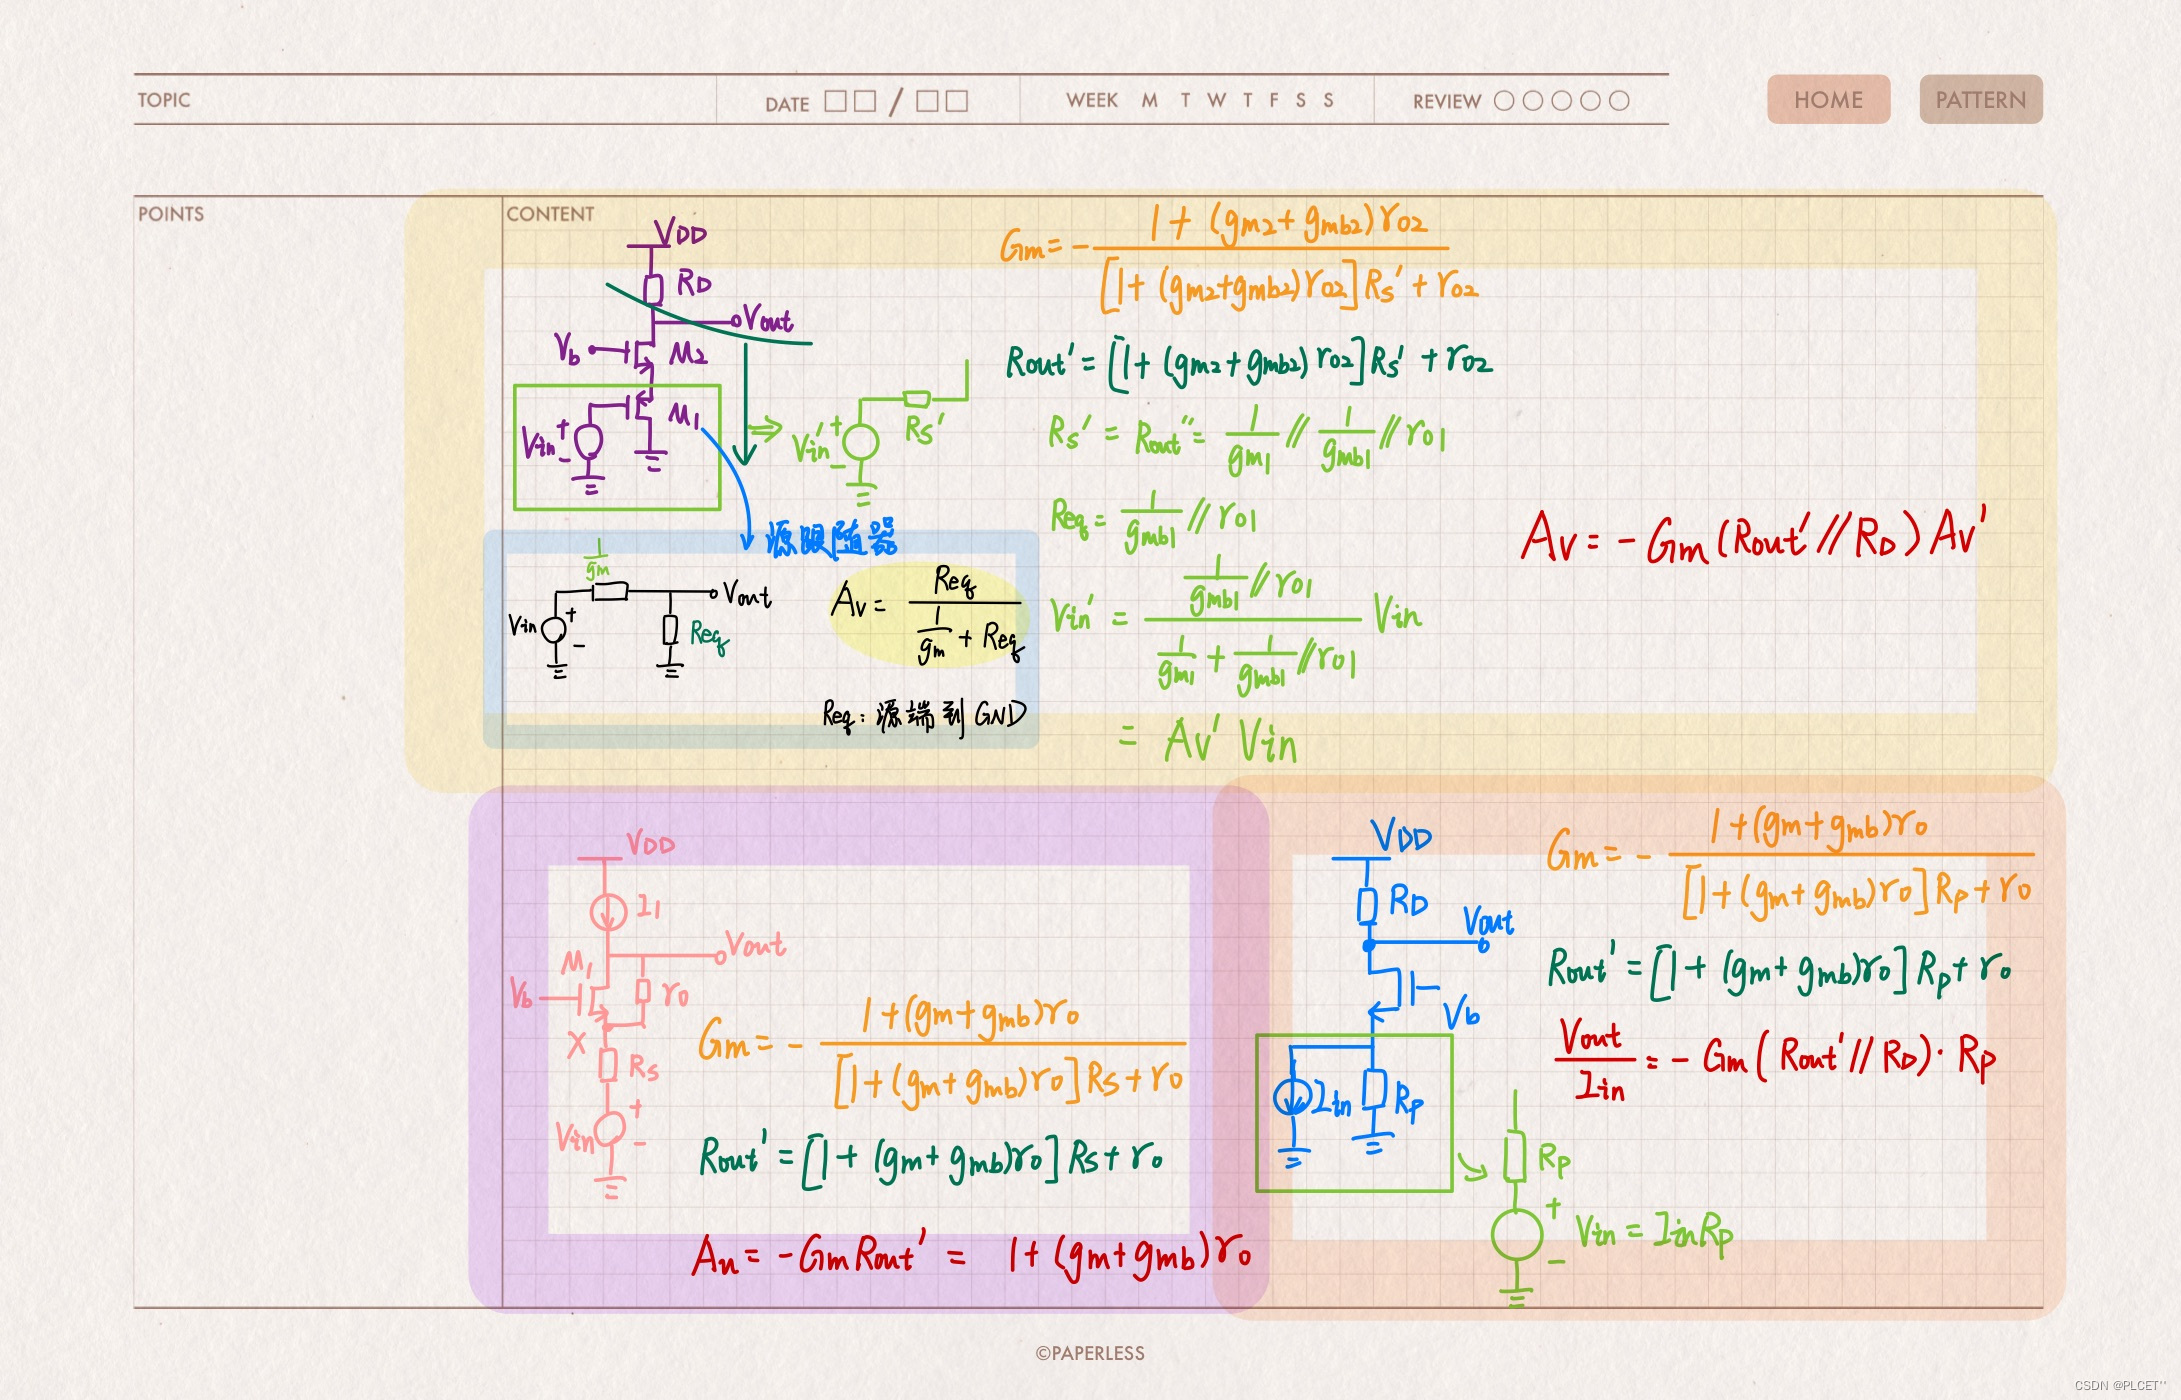 TOPIC
DATE □□ / □□
WEEK M T W T F S S
REVIEW ○○○○○
HOME
PATTERN
POINTS
CONTENT
VDD
RD
Vout
Vb
M2
M1
Vin
+
-
⇒
Vin'
+
-
Rs'
源跟随器
1/gm
Vin
+
-
Vout
Req
Av = Req / (1/gm + Req)
Req: 源端到GND
Gm = - (1 + (gm2 + gmb2)ro2) / ([1 + (gm2+gmb2)ro2]Rs' + ro2)
Rout' = [1 + (gm2 + gmb2) ro2]Rs' + ro2
Rs' = Rout'' = 1/gm1 // 1/gmb1 // ro1
Req = 1/gmb1 // ro1
Vin' = (1/gmb1 // ro1) / (1/gm1 + 1/gmb1 // ro1) Vin
= Av' Vin
Av = - Gm (Rout' // RD) Av'
VDD
I1
Vout
M1
Vb
ro
X
Rs
Vin
+
-
Gm = - (1+(gm+gmb)ro) / ([1+(gm+gmb)ro]Rs+ro)
Rout' = [1 + (gm+gmb)ro] Rs + ro
An = -Gm Rout' = 1 + (gm+gmb)ro
VDD
RD
Vout
Vb
Iin
Rp
Rp
+
-
Vin = IinRp
Gm = - (1+(gm+gmb)ro) / ([1+(gm+gmb)ro]Rp+ro)
Rout' = [1 + (gm+gmb)ro] Rp + ro
Vout/Iin = - Gm (Rout' // RD) · Rp
©PAPERLESS
CSDN @PLCET''